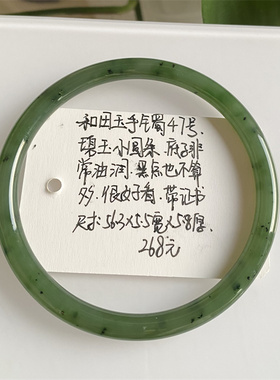 和田玉手镯47号.
碧玉小圆条. 底子非
常油润. 黑点也不算
多. 很好看. 带证书
尺寸: 56.3×5.5宽×5.8厚.
268元